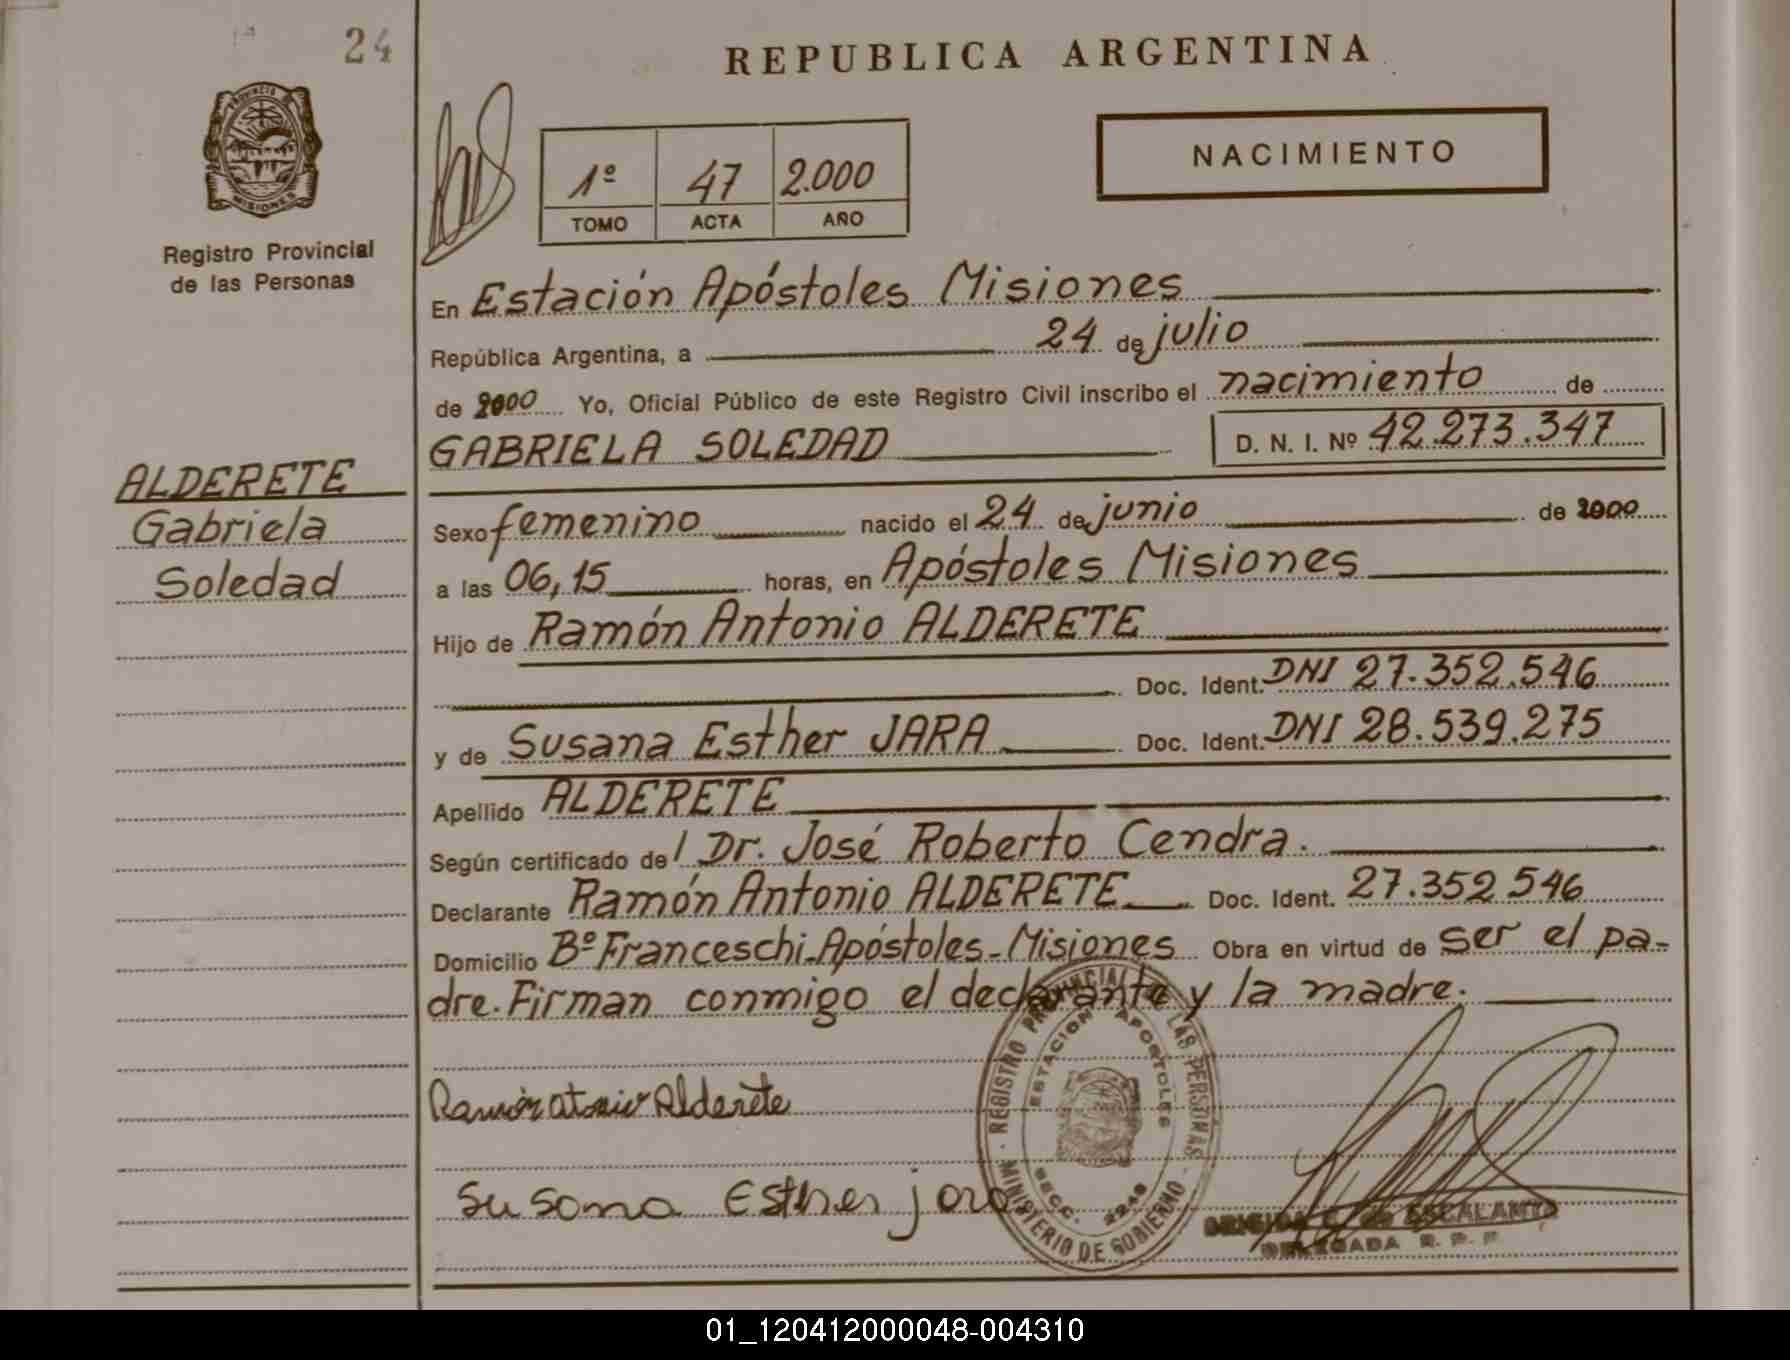 24
REPUBLICA ARGENTINA
PROVINCIA DE
MISIONES
Registro Provincial
de las Personas
1º 47 2.000
TOMO ACTA AÑO
NACIMIENTO
En Estación Apóstoles Misiones
República Argentina, a 24 de julio
de 2000 Yo, Oficial Público de este Registro Civil inscribo el nacimiento de
GABRIELA SOLEDAD D. N. I. Nº 42.273.347
ALDERETE
Gabriela
Soledad
Sexo femenino nacido el 24 de junio de 2000
a las 06,15 horas, en Apóstoles Misiones
Hijo de Ramón Antonio ALDERETE
Doc. Ident. DNI 27.352.546
y de Susana Esther JARA Doc. Ident. DNI 28.539.275
Apellido ALDERETE
Según certificado de / Dr. José Roberto Cendra.
Declarante Ramón Antonio ALDERETE Doc. Ident. 27.352 546
Domicilio Bº Franceschi-Apóstoles-Misiones Obra en virtud de ser el pa-
dre. Firman conmigo el declarante y la madre.
REGISTRO PROVINCIAL DE LAS PERSONAS
ESTACION APOSTOLES
SECC. 2248
MINISTERIO DE GOBIERNO
Ramón atonio Alderete
Susana Esther jara
de ESCALANTE
DELEGADA R. P. P.
01_120412000048-004310